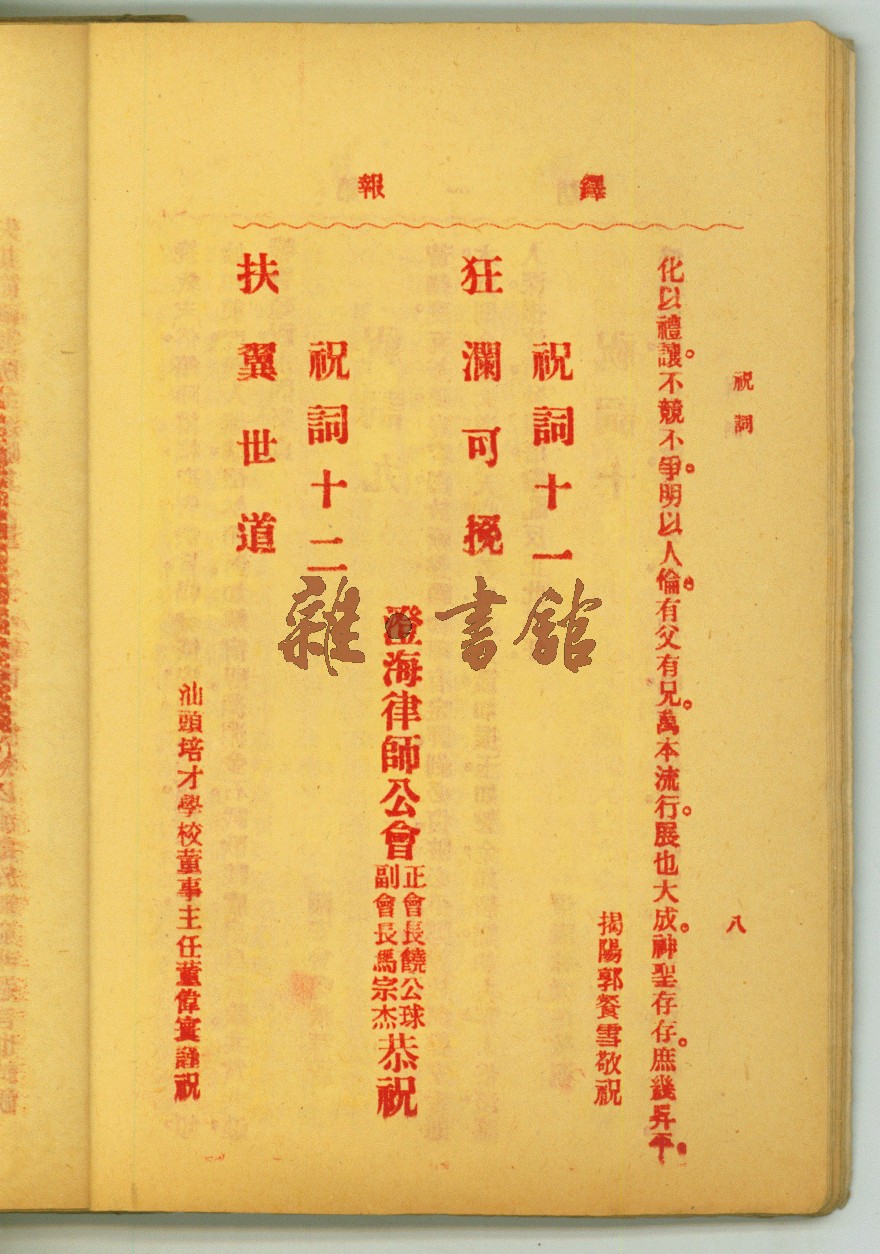 鐸報
祝詞
八
化以禮讓。不競不爭。明以人倫。有父有兄。萬本流行。展也大成。神聖存存。庶幾昇平。
揭陽郭餐雪敬祝
祝詞十一
狂瀾可挽
澄海律師公會正會長饒公球副會長馬宗杰恭祝
祝詞十二
扶翼世道
汕頭培才學校董事主任董偉寰謹祝
雜書館